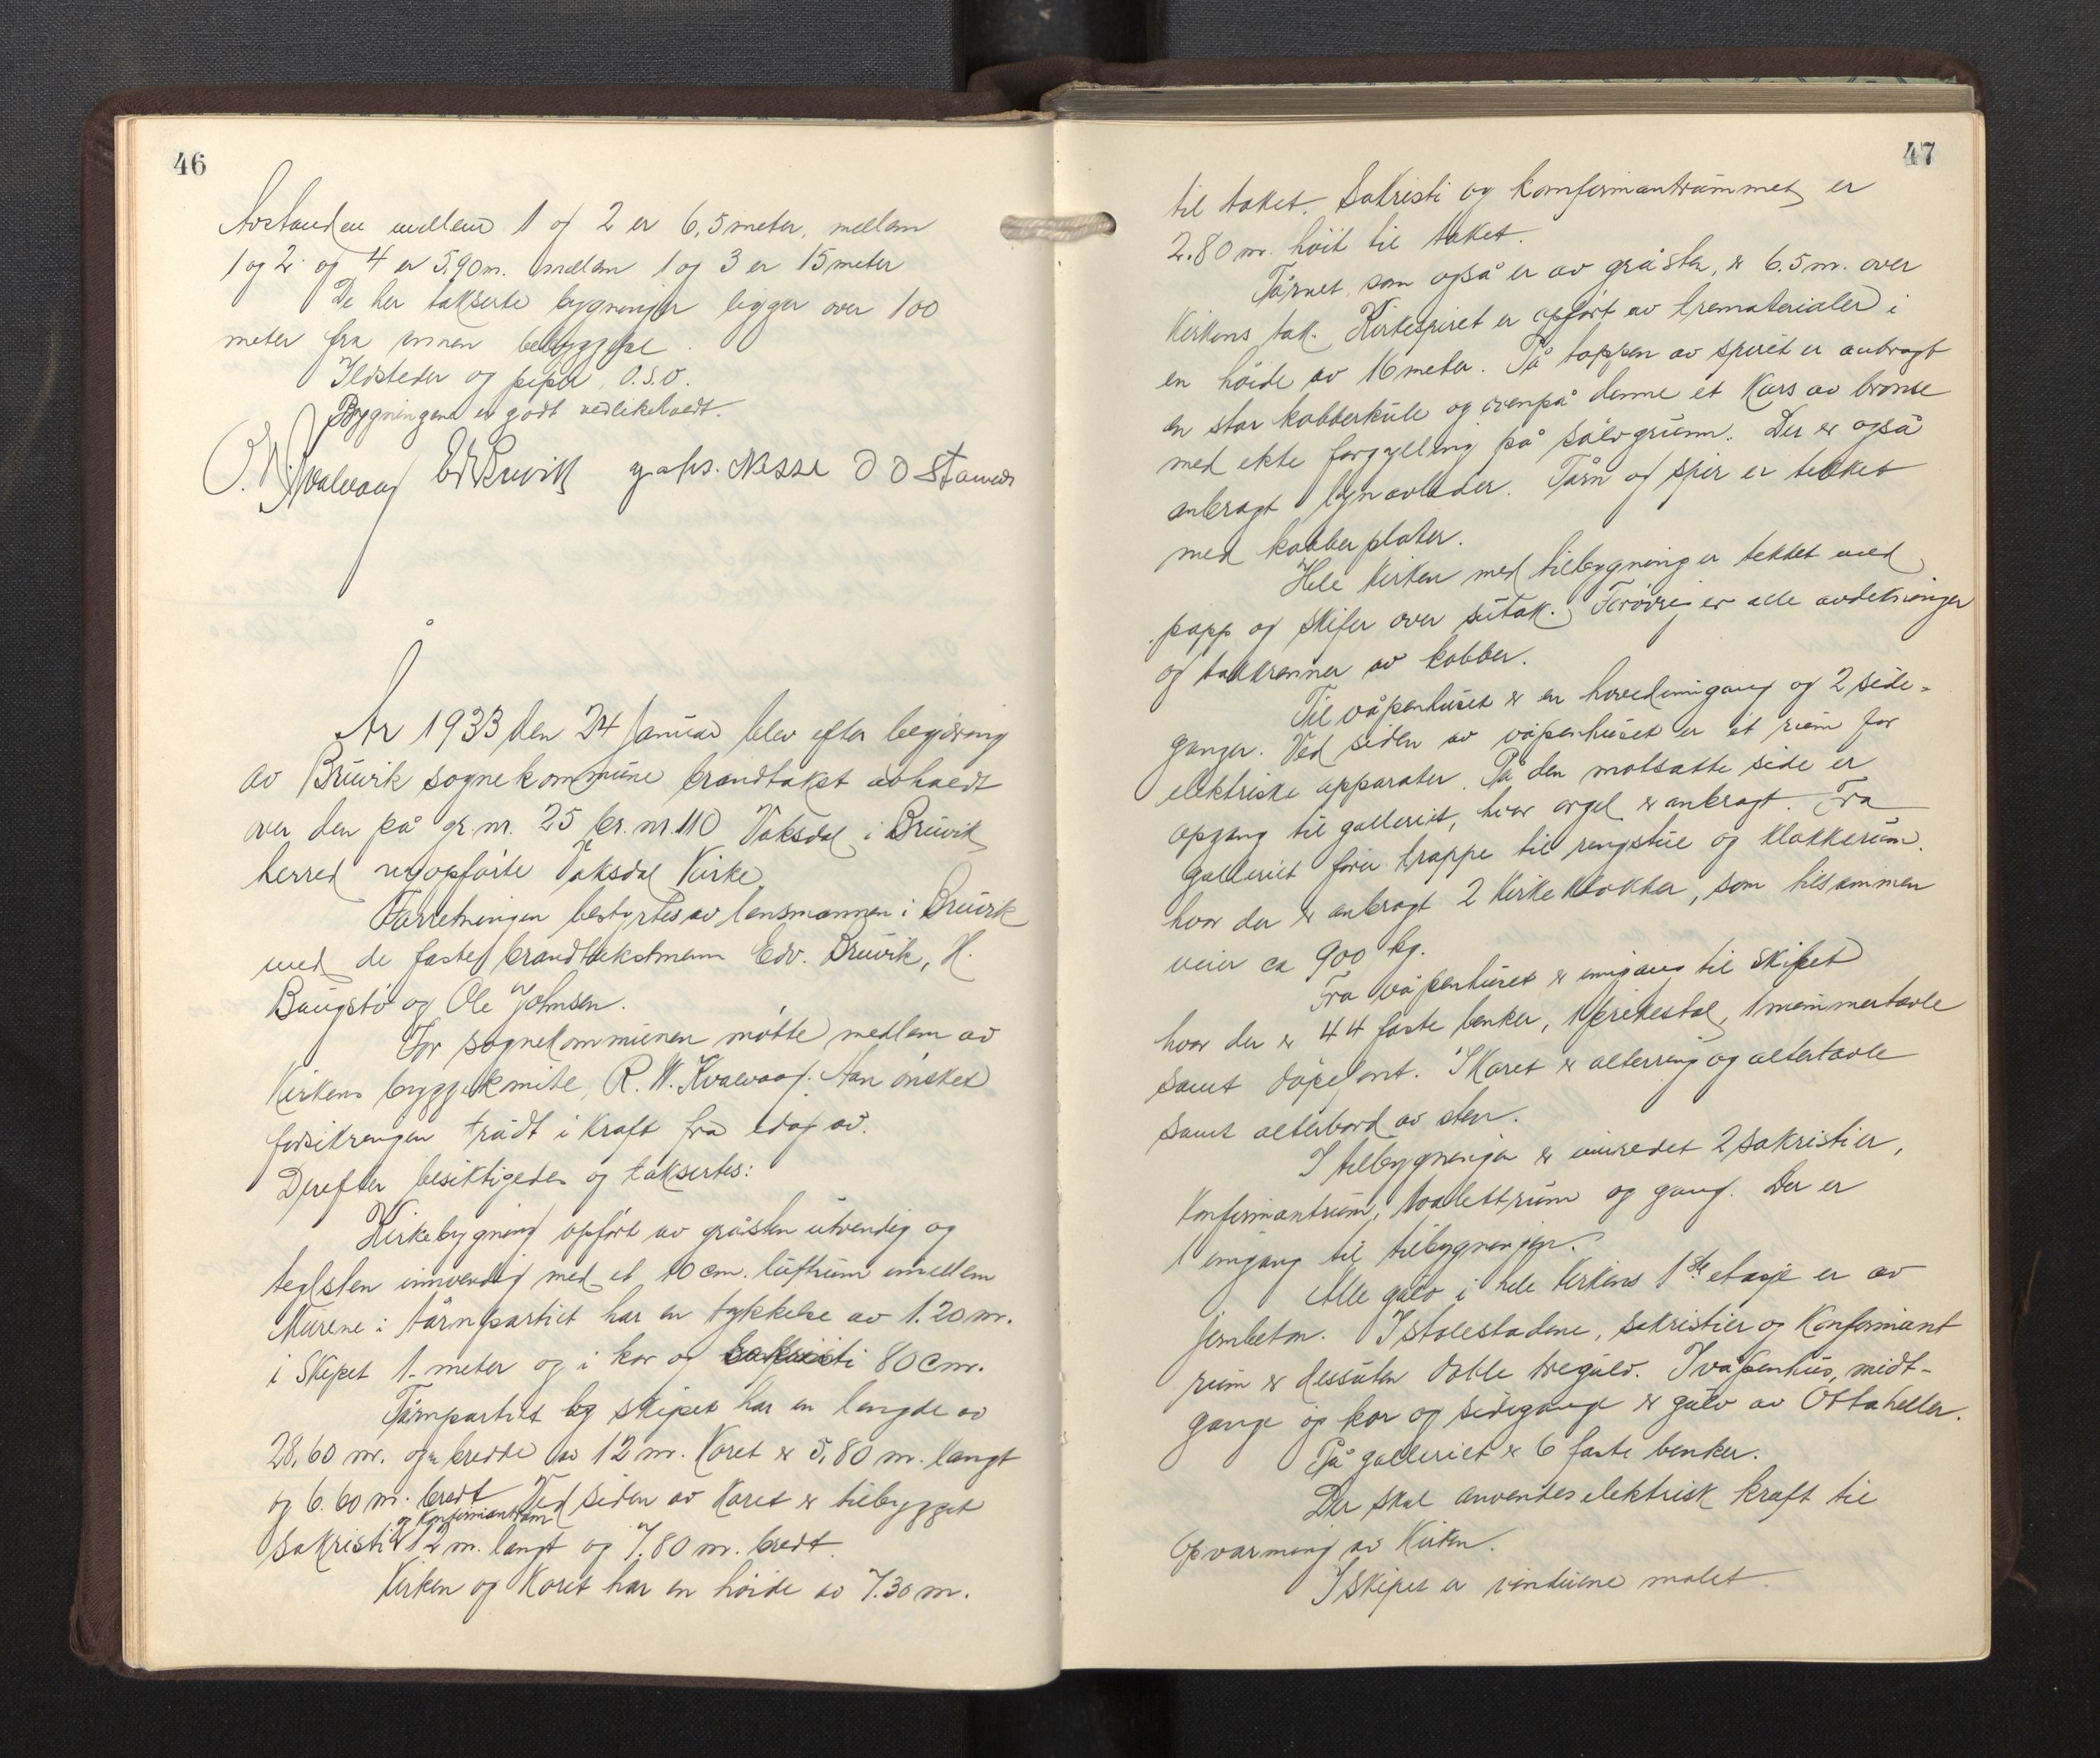 46
Avstanden mellem 1 og 2 er 6,5 meter, mellem
1 og 2 og 4 er 5,90 m. mellem 1 og 3 er 15 meter
De her takserte bygninger ligger over 100
meter fra annen bebyggelse.
Ildsteder og piper O.S.V.
Bygningene er godt vedlikeholdt.
O. W. Kvalvaag Edv Bruvik Johs. Nesse O O Stamnes
År 1933 den 24 Januar blev efter begjæring
av Bruvik sognekommune brandtakst avholdt
over den på gr. nr. 25 br. nr. 110 Vaksdal i Bruvik
herred nyopførte Vaksdal Kirke.
Forretningen bestyrtes av lensmannen i Bruvik
med de faste brandtakstmenn Edv. Bruvik, H.
Baugstø og Ole Johnsen.
For sognekommunen møtte medlem av
Kirkens byggekomite, R. W. Kvalvaag. Han ønsket
forsikringen trådt i kraft fra idag av.
Derefter besiktigedes og taksertes:
Kirkebygning opført av gråsten utvendig og
teglsten innvendig med et 10 cm. luftrum imellem
Murene i tårnpartiet har en tykkelse av 1.20 m.
i Skipet 1- meter og i kor og sakristi 80 cm.
Tårnpartiet og skipet har en lengde av
28,60 m. og en bredde av 12 m. Koret er 5,80 m. langt
og 6.60 m. bredt Ved siden av Koret er tilbygget
sakristi og Konfirmantrum 12 m. langt og 7,80 m. bredt.
Kirken og Koret har en høide av 7.30 m.
47
til taket. Sakristi og konfirmantrummet er
2.80 m. høit til taket.
Tårnet, som også er av gråsten, er 6.5 m. over
Kirkens tak. Kirkespiret er opført av trematerialer i
en høide av 16 meter. På toppen av spiret er anbragt
en stor kobberkule og ovenpå denne et Kors av bronse
med ekte forgylling på sølvgrunn. Der er også
anbragt lynavleder. Tårn og spir er tekket
med kobberplater.
Hele Kirken med tilbygning er tekket med
papp og skifer over sutak. Forøvrig er alle avdekninger
og takrenner av kobber.
Til våpenhuset er en hovedinngang og 2 side-
ganger. Ved siden av våpenhuset er et rum for
elektriske apparater. På den motsatte side er
opgang til galleriet, hvor orgel er anbragt. Fra
galleriet fører trappe til ringstue og klokkerum.
hvor der er anbragt 2 Kirkeklokker, som tilsammen
veier ca 900 kg.
Fra våpenhuset er inngang til skipet
hvor der er 44 faste benker, 1 prekestol, 1 nummertavle
samt døpefont. I Koret er alterring og altertavle
samt alterbord av sten.
I tilbygningen er innredet 2 sakristier,
Konfirmantrum, toalettrum og gang. Der er
1 inngang til tilbygningen.
Alle gulv i hele kirkens 1ste etasje er av
jernbeton. I stolestadene, sakristier og Konfirmant
rum er dessuten doble tregulv. I våpenhus, midt-
gange og kor og sidegange er gulv av Ottaheller.
På galleriet er 6 faste benker.
Der skal anvendes elektrisk kraft til
opvarming av Kirken.
I Skipet er vinduene malet